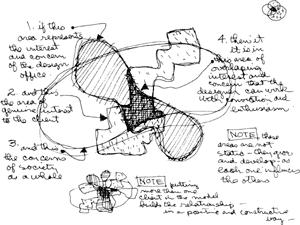 1. if this
area represents
the interest
and concern
of the design
office.
2. and this
the area of
genuine interest
to the client
3. and this
the concerns
of society
as a whole
4. then it
is in
this area of
overlapping
interest and
concern that the
designer can work
with conviction and
enthusiasm
NOTE these
areas are not
static - they grow
and develop - as
each one influences
the others
NOTE putting
more than one
client in the model
builds the relationship -
in a positive and constructive
way -